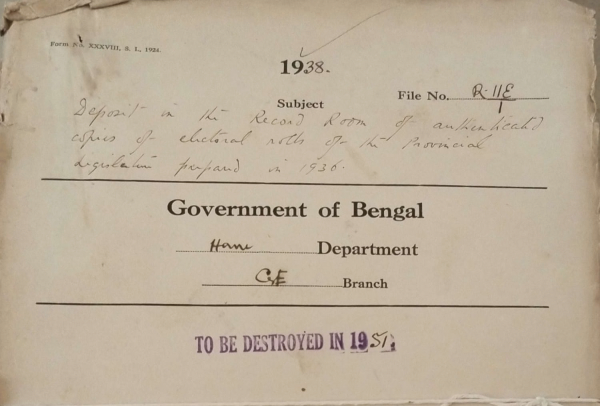 Form No. XXXVIII, S. I., 1924.
1938.
File No. R-11E/1
Subject
Deposit in the Record Room of authenticated
copies of electoral rolls of the Provincial
Legislature prepared in 1936.
Government of Bengal
Home Department
Branch
TO BE DESTROYED IN 1951